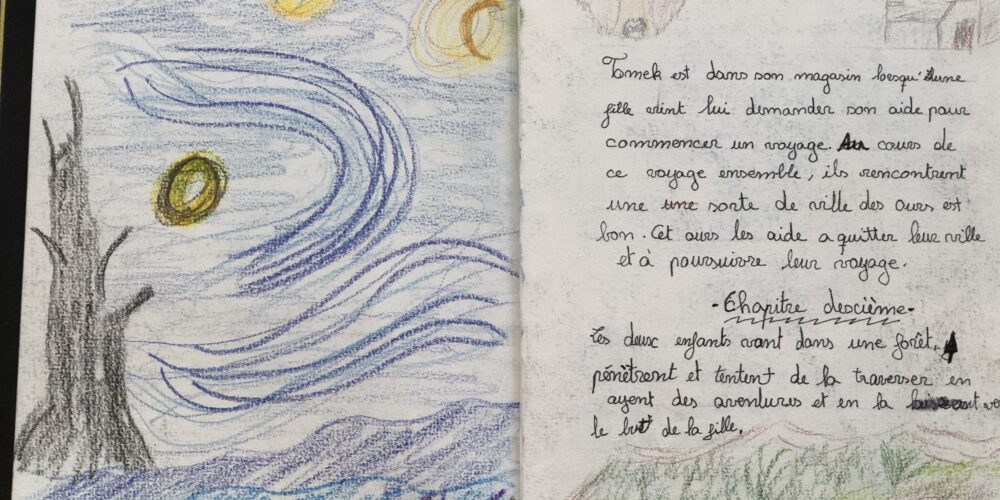 Tomek est dans son magasin lorsqu'une
fille vint lui demander son aide pour
commencer un voyage. Au cours de
ce voyage ensemble, ils rencontrent
une une sorte de ville des ours est
bon. Cet ours les aide a quitter leur ville
et à poursuivre leur voyage.
-Chapitre descième-
Les deux enfants vont dans une forêt,
pénètrent et tentent de la traverser en
ayent des aventures et en la
le but de la fille.